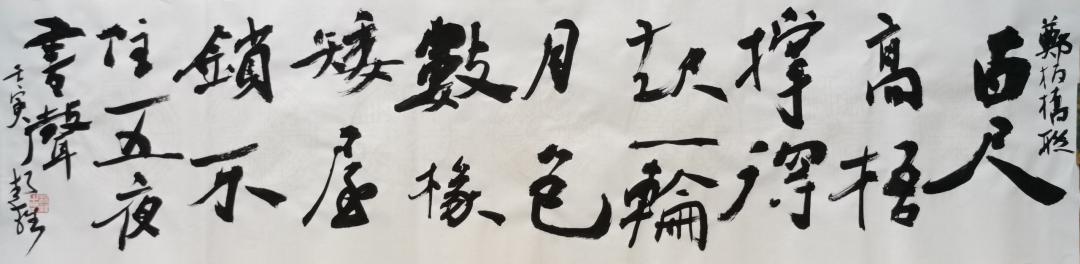 鄭板橋聯
百尺
高梧
撐得
起一輪
月色
數椽
矮屋
鎖不
住五夜
書聲
壬寅